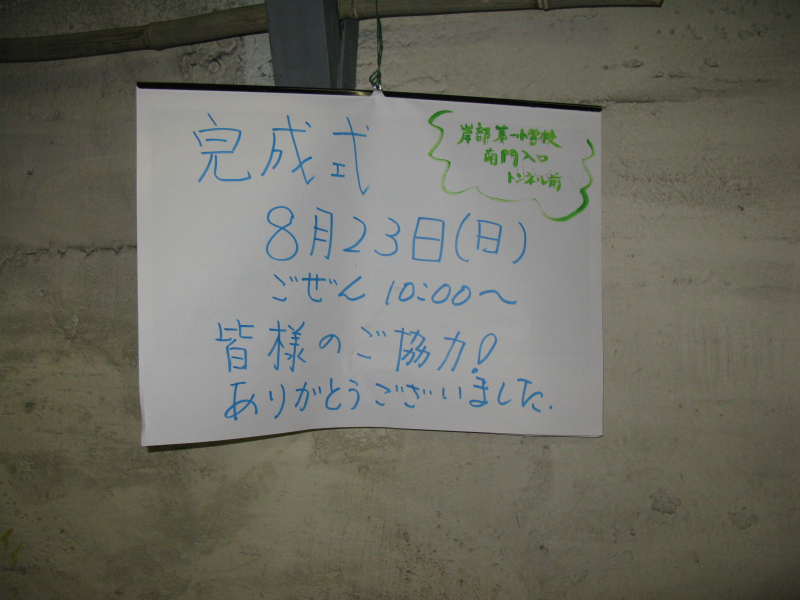 完成式
岸部第一小学校
南門入口
トンネル前
8月23日(日)
ごぜん 10:00〜
皆様のご協力!
ありがとうございました.